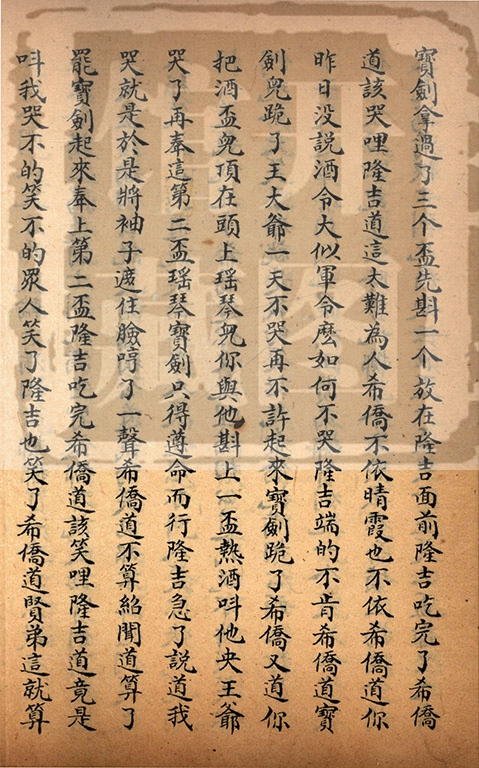 寳劍拿過了三个盃先斟一个放在隆吉面前隆吉吃完了希僑
道該哭哩隆吉道這太難為人希僑不依晴霞也不依希僑道你
昨日没説酒令大似軍令麽如何不哭隆吉端的不肯希僑道寳
劍兒跪了王大爺一天不哭再不許起來寳劍跪了希僑又道你
把酒盃兒頂在頭上瑶琴兒你與他斟上一盃熱酒呌他央王爺
哭了再奉這第二盃瑶琴寳劍只得遵命而行隆吉急了説道我
哭就是於是將袖子遮住臉哼了一聲希僑道不算紹聞道算了
罷寳劍起來奉上第二盃隆吉吃完希僑道該笑哩隆吉道竟是
呌我哭不的笑不的眾人笑了隆吉也笑了希僑道賢弟這就算